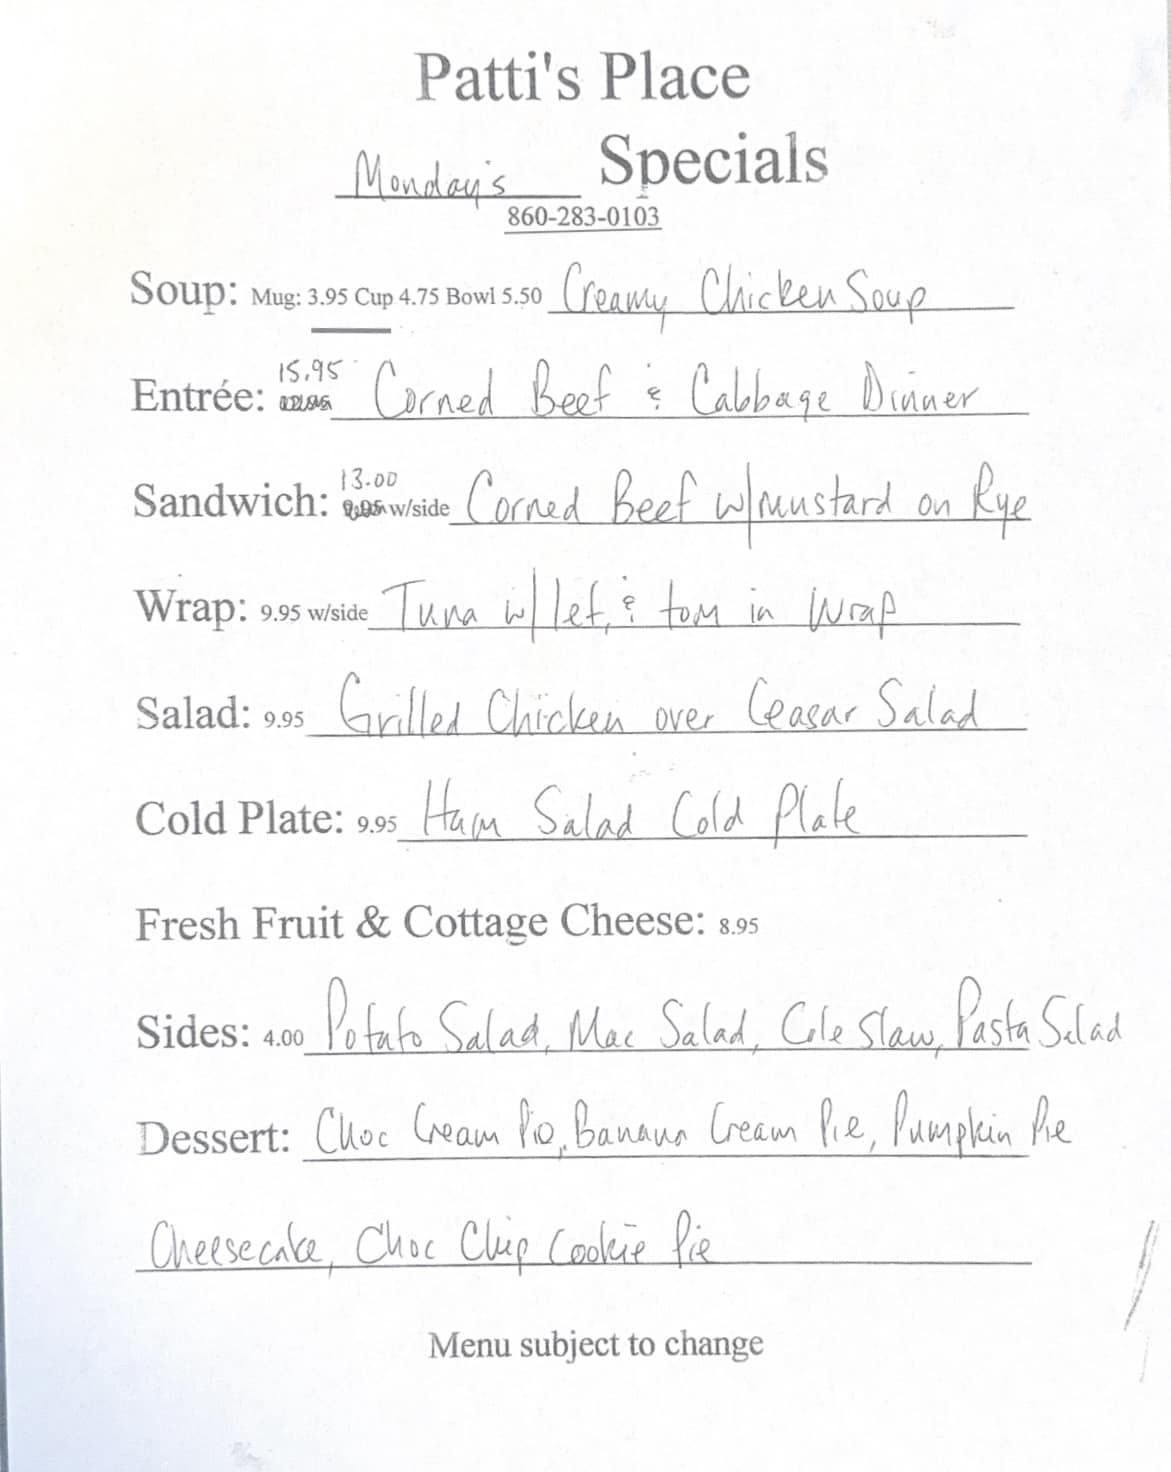 Patti's Place
Monday's Specials
860-283-0103
Soup: Mug: 3.95 Cup 4.75 Bowl 5.50 Creamy Chicken Soup
15.95
Entrée: Corned Beef & Cabbage Dinner
13.00
Sandwich: w/side Corned Beef w/mustard on Rye
Wrap: 9.95 w/side Tuna w/ let, & tom in Wrap
Salad: 9.95 Grilled Chicken over Ceasar Salad
Cold Plate: 9.95 Ham Salad Cold Plate
Fresh Fruit & Cottage Cheese: 8.95
Sides: 4.00 Potato Salad, Mac Salad, Cole Slaw, Pasta Salad
Dessert: Choc Cream Pie, Banana Cream Pie, Pumpkin Pie
Cheesecake, Choc Chip Cookie Pie
Menu subject to change